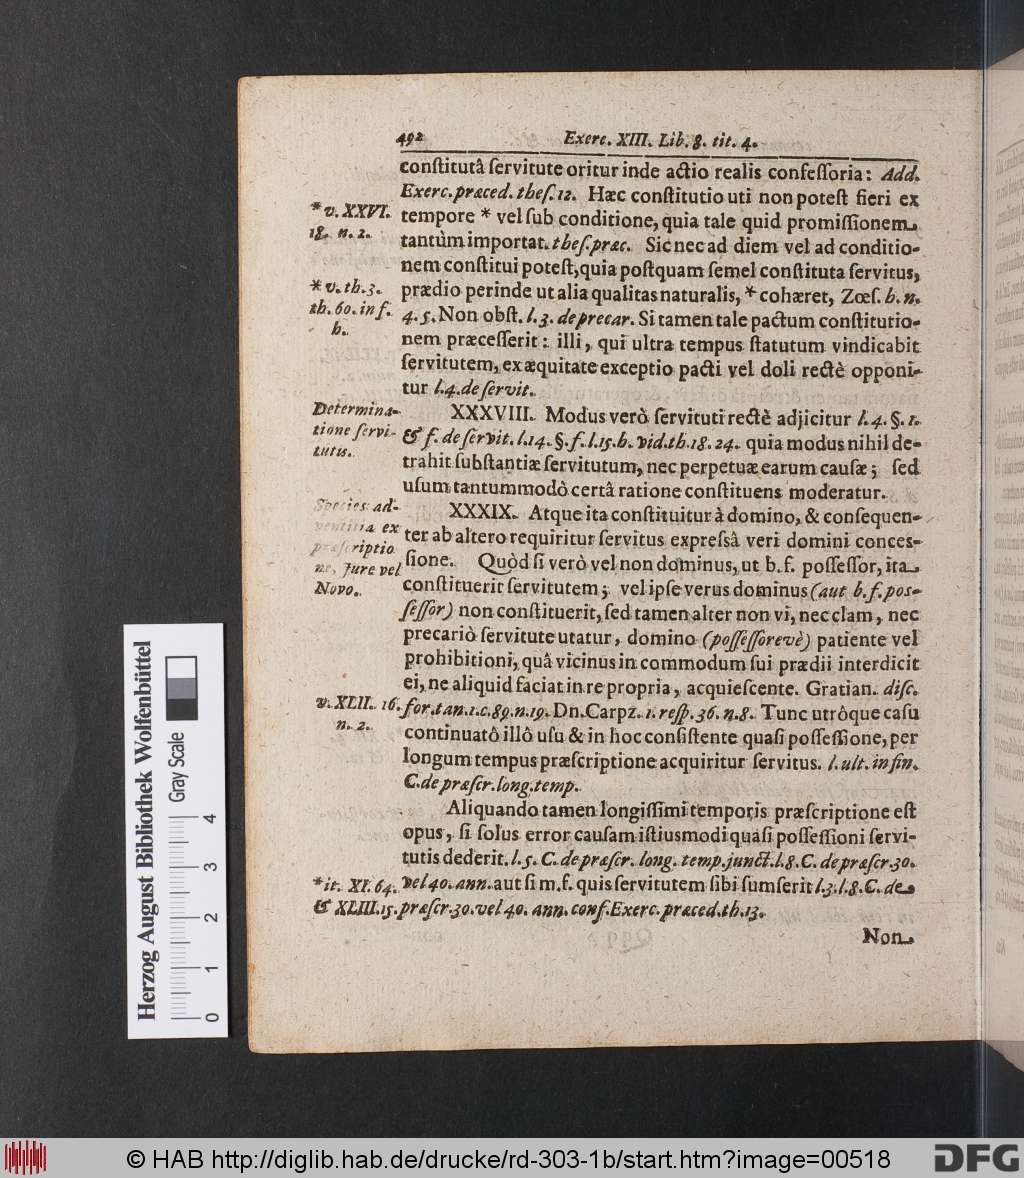 492 Exerc. XIII. Lib. 8. tit. 4.
constitutâ servitute oritur inde actio realis confessoria: Add.
Exerc. præced. thes. 12. Hæc constitutio uti non potest fieri ex
tempore * vel sub conditione, quia tale quid promissionem
tantùm importat. thes. præc. Sic nec ad diem vel ad conditio-
nem constitui potest, quia postquam semel constituta servitus,
prædio perinde ut alia qualitas naturalis, * cohæret, Zœs. h. n.
4. 5. Non obst. l. 3. de precar. Si tamen tale pactum constitutio-
nem præcesserit: illi, qui ultra tempus statutum vindicabit
servitutem, ex æquitate exceptio pacti vel doli rectè opponi-
tur l. 4. de servit.
*v. XXVI.
18. n. 2.
* v. th. 3.
th. 60. in f.
h.
XXXVIII. Modus verò servituti rectè adjicitur l. 4. §. 1.
& f. de servit. l. 14. §. f. l. 15. h. vid. th. 18. 24. quia modus nihil de-
trahit substantiæ servitutum, nec perpetuæ earum causæ; sed
usum tantummodò certâ ratione constituens moderatur.
Determina-
tione servi-
tutis.
XXXIX. Atque ita constituitur à domino, & consequen-
ter ab altero requiritur servitus expressâ veri domini conces-
sione. Quòd si verò vel non dominus, ut b. f. possessor, ita
constituerit servitutem; vel ipse verus dominus (aut b. f. pos-
sessor) non constituerit, sed tamen alter non vi, nec clam, nec
precariò servitute utatur, domino (possessorevè) patiente vel
prohibitioni, quâ vicinus in commodum sui prædii interdicit
ei, ne aliquid faciat in re propria, acquiescente. Gratian. disc.
for. tan. 1. c. 89. n. 19. Dn. Carpz. 1. resp. 36. n. 8. Tunc utrôque casu
continuatô illô usu & in hoc consistente quasi possessione, per
longum tempus præscriptione acquiritur servitus. l. ult. in fin.
C. de præscr. long. temp.
Species ad-
ventitia ex
præscriptio
ne, Jure vel
Novo.
v. XLII. 16.
n. 2.
Aliquando tamen longissimi temporis præscriptione est
opus, si solus error causam istiusmodi quasi possessioni servi-
tutis dederit. l. 5. C. de præscr. long. temp. junct. l. 8. C. de præscr. 30.
vel 40. ann. aut si m. f. quis servitutem sibi sumserit l. 3. l. 8. C. de
præscr. 30. vel 40. ann. conf. Exerc. præced. th. 13.
*it. XI. 64.
& XLIII. 15.
Non
Herzog August Bibliothek Wolfenbüttel
Gray Scale
0 1 2 3 4
© HAB http://diglib.hab.de/drucke/rd-303-1b/start.htm?image=00518
DFG